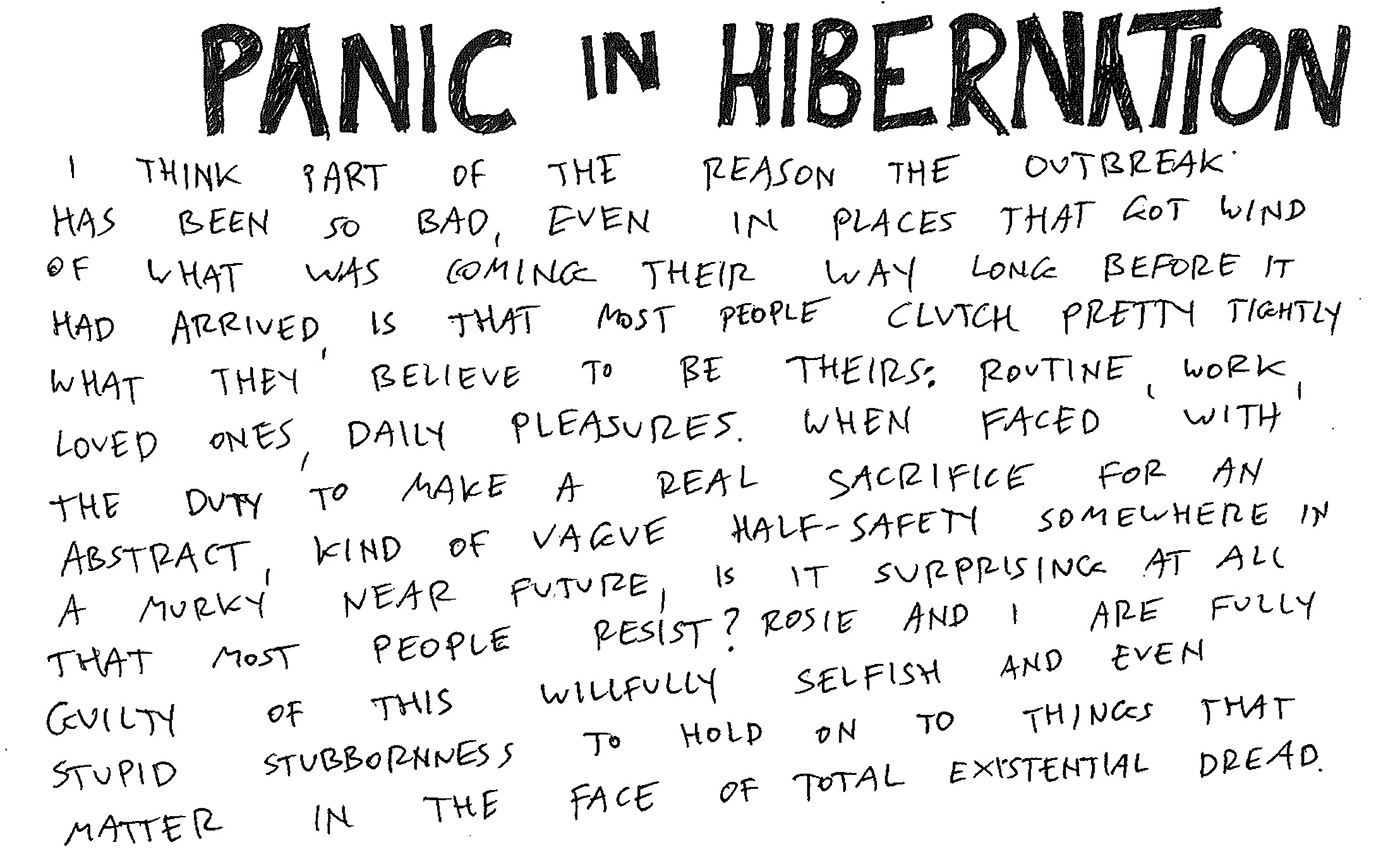 PANIC IN HIBERNATION
I THINK PART OF THE REASON THE OUTBREAK
HAS BEEN SO BAD, EVEN IN PLACES THAT GOT WIND
OF WHAT WAS COMING THEIR WAY LONG BEFORE IT
HAD ARRIVED, IS THAT MOST PEOPLE CLUTCH PRETTY TIGHTLY
WHAT THEY BELIEVE TO BE THEIRS: ROUTINE, WORK,
LOVED ONES, DAILY PLEASURES. WHEN FACED WITH
THE DUTY TO MAKE A REAL SACRIFICE FOR AN
ABSTRACT, KIND OF VAGUE HALF-SAFETY SOMEWHERE IN
A MURKY NEAR FUTURE, IS IT SURPRISING AT ALL
THAT MOST PEOPLE RESIST? ROSIE AND I ARE FULLY
GUILTY OF THIS WILLFULLY SELFISH AND EVEN
STUPID STUBBORNNESS TO HOLD ON TO THINGS THAT
MATTER IN THE FACE OF TOTAL EXISTENTIAL DREAD.